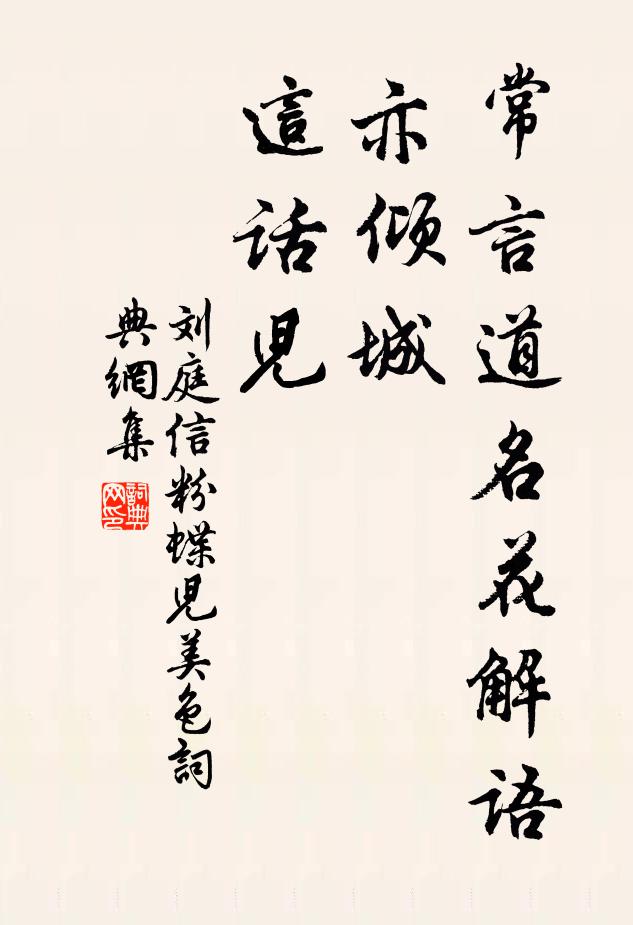 常言道名花解语
亦倾城
這話児
刘庭信粉蝶児美色詞
典網集
詞典网印